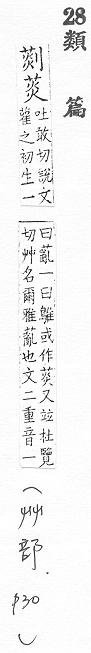 28
類篇
䓹菼
吐敢切說文
雚之初生一
曰薍一曰鵻或作菼又竝杜覽
切艸名爾雅薍也文二重音一
(艸部. p30)